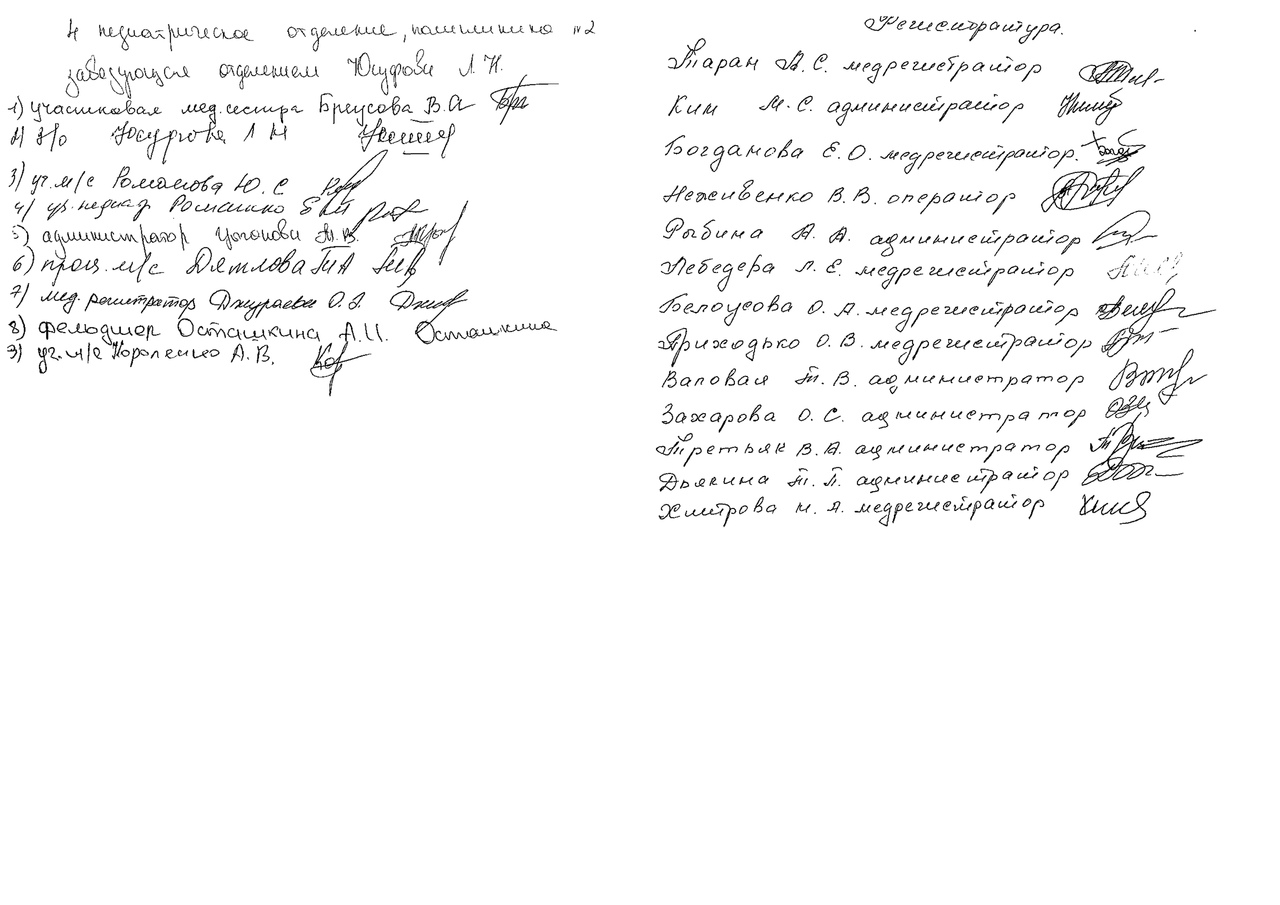 4 педиатрическое отделение, поликлиника №2
заведующая отделением Юсуфова Л.Н.
1) участковая мед.сестра Бреусова В.А
2) З/о Юсуфова Л Н
3) уч.м/с Романова Ю. С
4) уч. педиатр Романенко
5) администратор
6) проц. м/с Дятлова
7) мед. регистратор Джураева О.
8) фельдшер Осташкина А.И. Осташкина
9) уч. м/с Короленко А. В.
Регистратура.
Таран А. С. медрегистратор
Ким М. С. администратор
Богданова Е. О. медрегистратор.
Неживенко В. В. оператор
Рыбина А. А. администратор
Лебедева Л. Е. медрегистратор
Белоусова О. А. медрегистратор
Приходько О. В. медрегистратор
Валовая Т. В. администратор
Захарова О. С. администратор
Третьяк В. А. администратор
Дьякина Т. П. администратор
Хмитрова Н. Я. медрегистратор